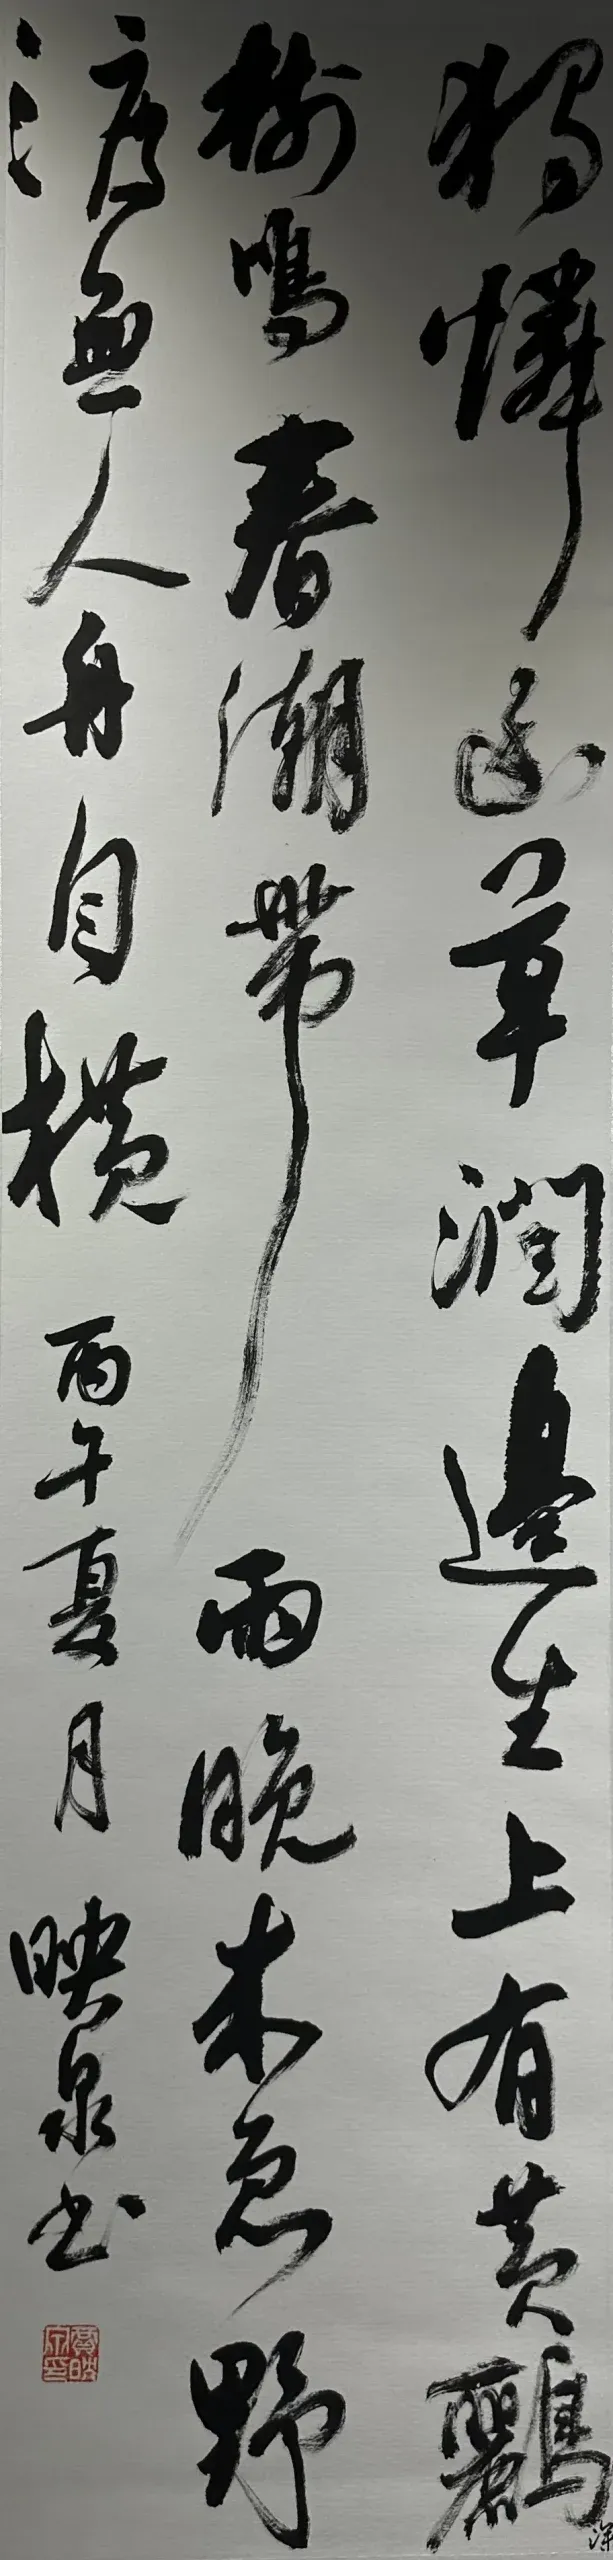 獨憐幽草澗邊生上有黃鸝深
樹鳴春潮帶雨晚來急野
渡無人舟自橫 丙午夏月 映泉書